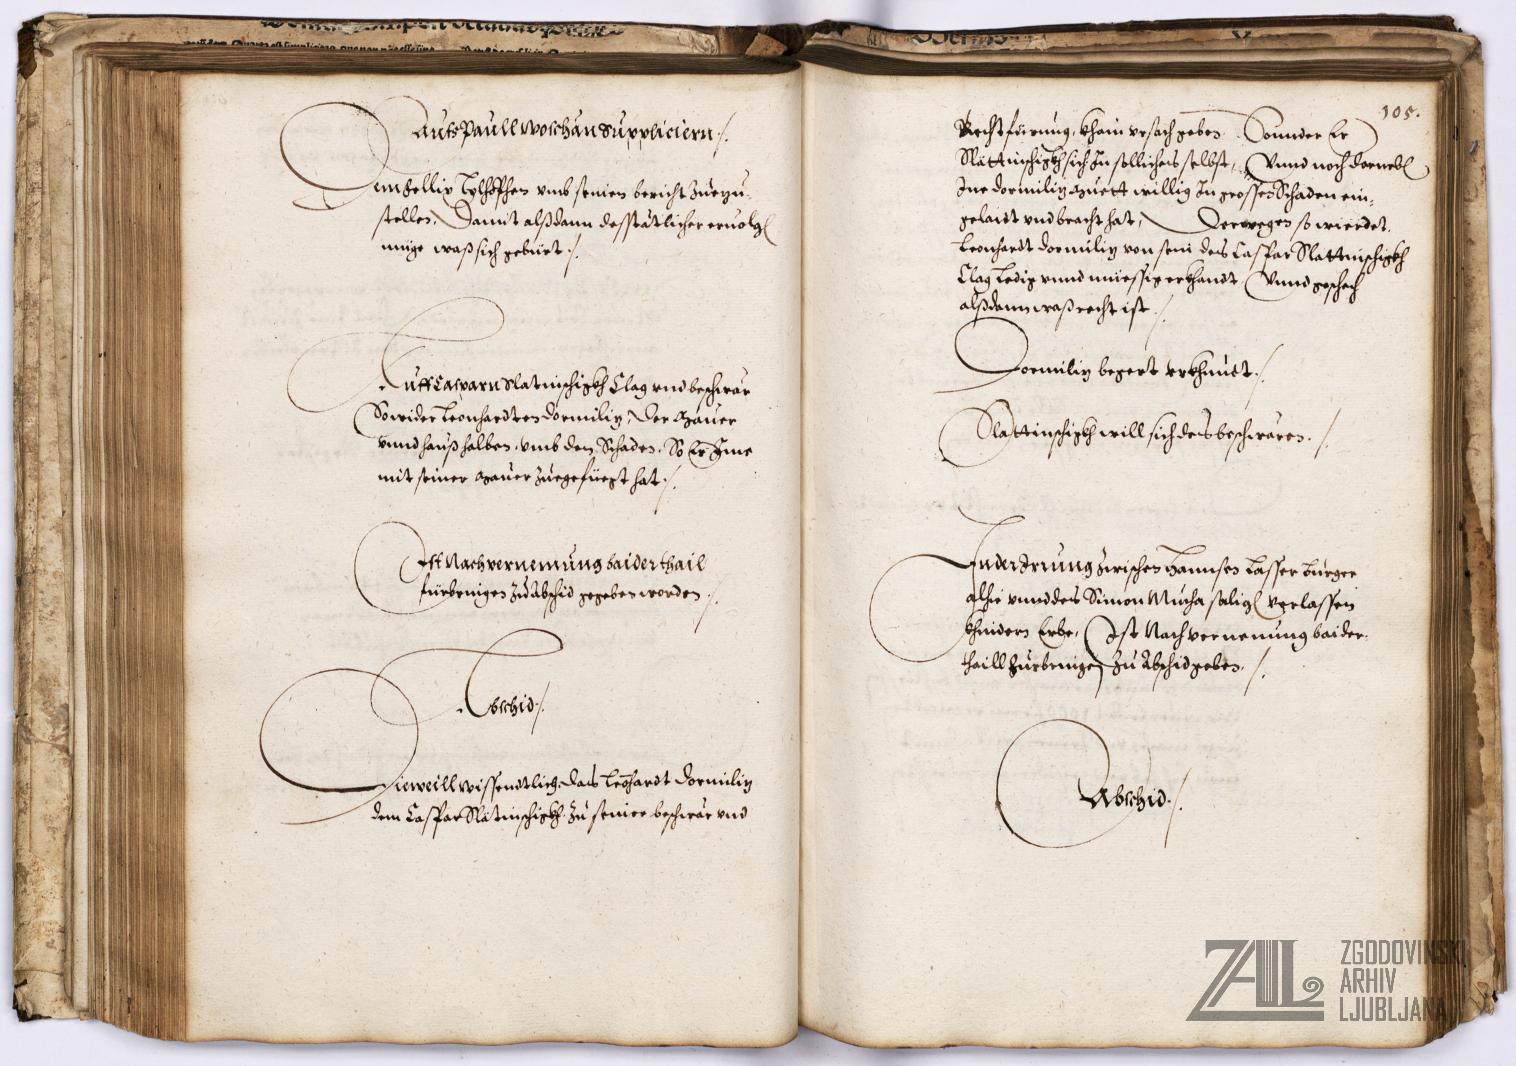 Auf Paull Wolchan Suppliciern ./.
Dem Fellix Tylhoffer umb seinen bericht Zuezu-
stellen, Damit alßdann desstatlicher ervolgen
müge was sich gebüert ./.
Auff Casparn Slatinschigkh Clag und beschwär
So wider Leonhardten Dormiliz, der Maur
unnd hauß halben, umb den Schaden, So Er Ime
mit seiner Maur Zuegefüegt hat ./.
Ist Nach vernemung baider thail
fürbringen Zu Abschid gegeben worden ./.
Abschid ./.
Dieweill wissendtlich, das Leonhardt Dormiliz
dem Caspar Slätinschigkh Zu seiner beschwär und
105.
Rechtfärung, khain ursach geben. Sonnder Er
Slättinschigkh sich Zu sollichem selbst, Unnd noch darneben
Ine Dormiliz muettwillig In grossen Schaden ein-
gelaidt und bracht hat, Derwegen so wierdet
Leonhardt Dormiliz von sein des Caspar Slattinschigkh
Clag Ledig unnd müessig erkhandt Unnd geschech
alßdann was recht ist ./.
Dormiliz begert urkhundt ./.
Slattinschigkh will sich des beschwären ./.
In der Irrung Zwischen Hannsen Lasser Burger
alhie unnd des Simon Mucha säligen verlassen
khindern Erbe, Ist Nach vernemung baider
thaill Fürbringen Zu Abschid geben ./.
Abschid ./.
ZAL
ZGODOVINSKI
ARHIV
LJUBLJANA